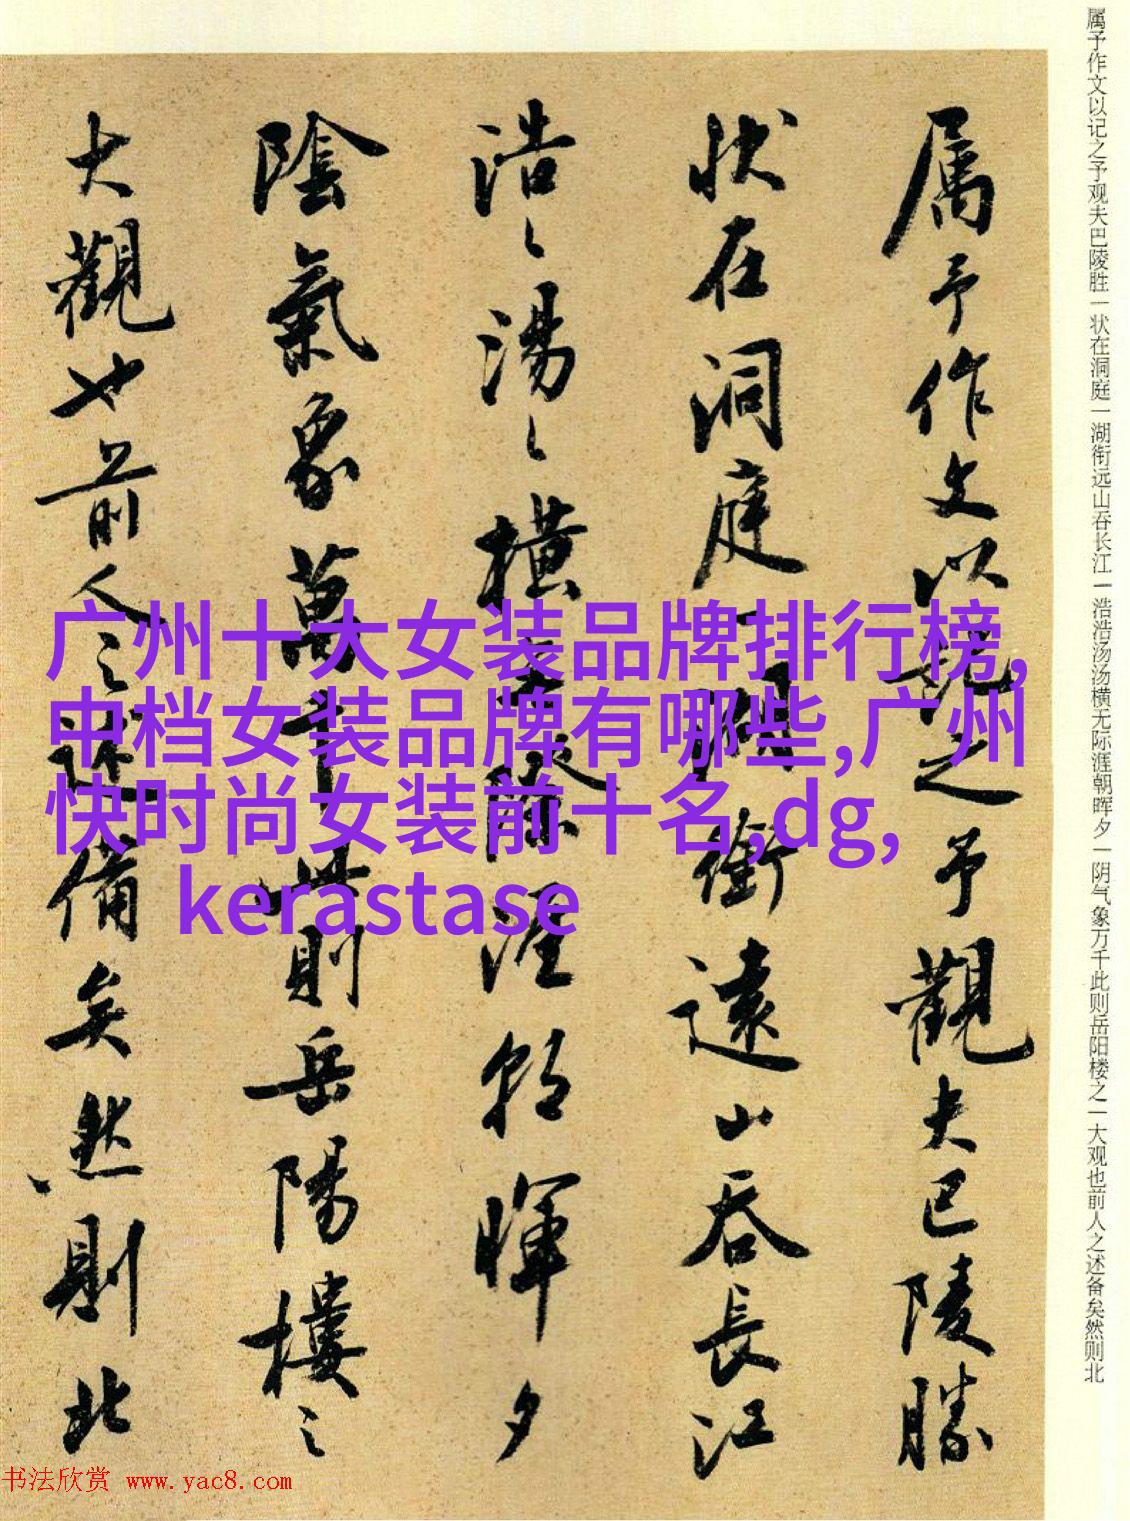 属予作文以记之予观夫巴陵胜一状在洞庭一湖衔远山吞长江一浩浩汤汤横无际涯朝晖夕一阴气象万千此则岳阳楼之一大观也前人之述备矣然则北
属予作文以記之予觀夫巴陵勝
状在洞庭一湖銜遠山吞長江
浩〻湯〻橫無際涯朝暉夕
陰氣象萬千此則岳陽樓之
大觀也前人之述備矣然則北
广州十大女装品牌排行榜,
中档女装品牌有哪些,广州
快时尚女装前十名,dg,
kerastase
书法欣赏 www.yac8.com